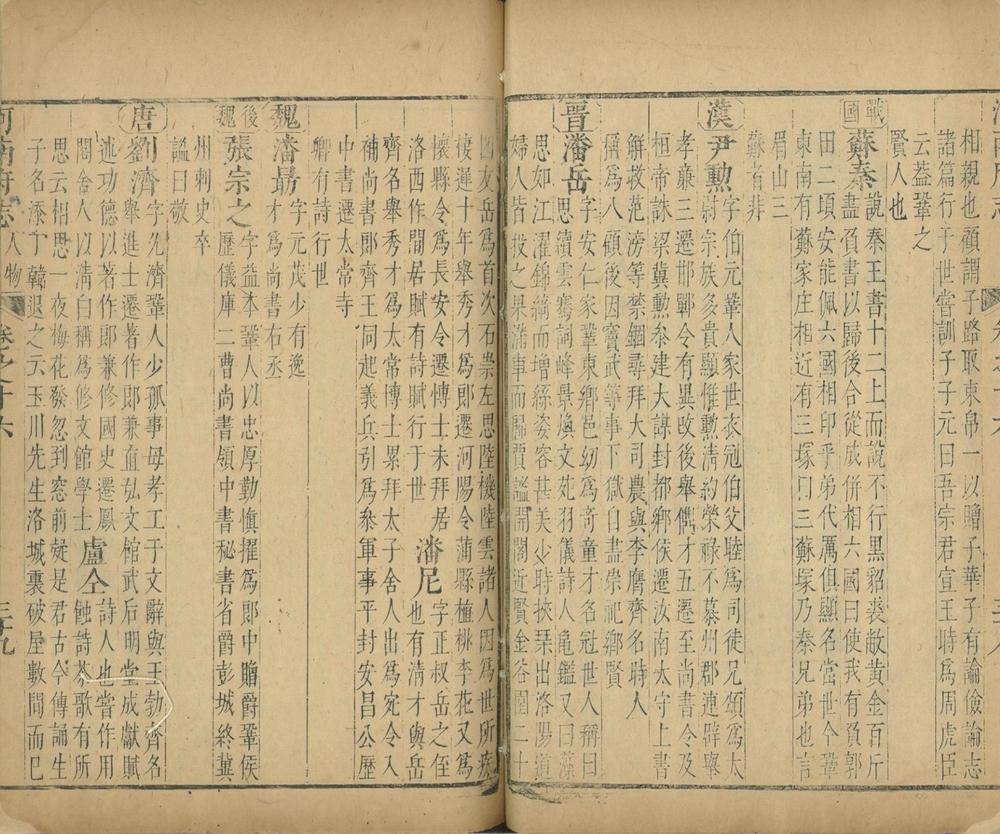 相親也顧謂子路取束帛一以贈子華子有論儉論志
諸篇行于世嘗訓子子元曰吾宗君宣王時爲周虎臣
云葢鞏之
賢人也
戰國 蘇秦 說秦王書十二上而說不行黑貂裘敝黄金百斤
盡負書以歸後合從成併相六國曰使我有負郭
田二頃安能佩六國相印乎弟代厲俱顯名當世今鞏
東南有蘇家庄相近有三塚曰三蘇塚乃秦兄弟也言
眉山三
蘇者非
漢 尹勲 字伯元鞏人家世衣冠伯父睦爲司徒兄頌爲太
尉宗族多貴顯惟勲淸約榮祿不慕州郡連辟舉
孝亷三遷邯鄲令有異政後舉儁才五遷至尚書令及
桓帝誅梁冀勲叅建大謀封都鄉侯遷汝南太守上書
解救范滂等禁錮尋拜大司農與李膺齊名時人
稱爲八顧後因竇武等事下獄自盡崇祀鄉賢
晋 潘岳 字安仁家鞏東鄉邑幼爲奇童才名冠世人稱曰
思續雲騫詞峰景煥文苑羽儀詩人亀鑑又曰藻
思如江濯錦綺而增絲姿容甚美少時挾琹出洛陽道
婦人皆投之果滿車而歸賈謐開閤近賢金谷園二十
四友岳爲首次石崇左思陸機陸雲諸人因爲世所疾
棲遲十年舉秀才爲郎遷河陽令蒲縣植桃李花又爲
懷縣令爲長安令遷慱士未拜居 潘尼 字正叔岳之侄
洛西作閒居賦有詩賦行于世 也有清才與岳
齊名舉秀才爲太常博士累拜太子舍人出爲宛令入
補尚書郎齊王冏起義兵引爲叅軍事平封安昌公歷
中書遷太常寺
卿有詩行世
魏 潘朂 字元茂少有逸
才爲尚書右丞
後魏 張宗之 字益本鞏人以忠厚勤愼擢爲郎中贈爵鞏侯
歷儀庫二曹尚書領中書秘書省爵彭城終冀
州刺史卒
謚曰敬
唐 劉濟 字允濟鞏人少孤事母孝工于文辭與王勃齊名
舉進士遷著作郎兼直弘文館武后明堂成獻賦
述功德以著作郎兼修國史遷鳳
閣舍人以清白稱爲修文館學士 盧仝 詩人也嘗作用
蝕詩茶歌有所
思云相思一夜梅花發忽到窓前疑是君古今傳誦生
子名添丁韓退之云玉川先生洛城裏破屋數間而已
河南府志 人物 卷之十六 三十九